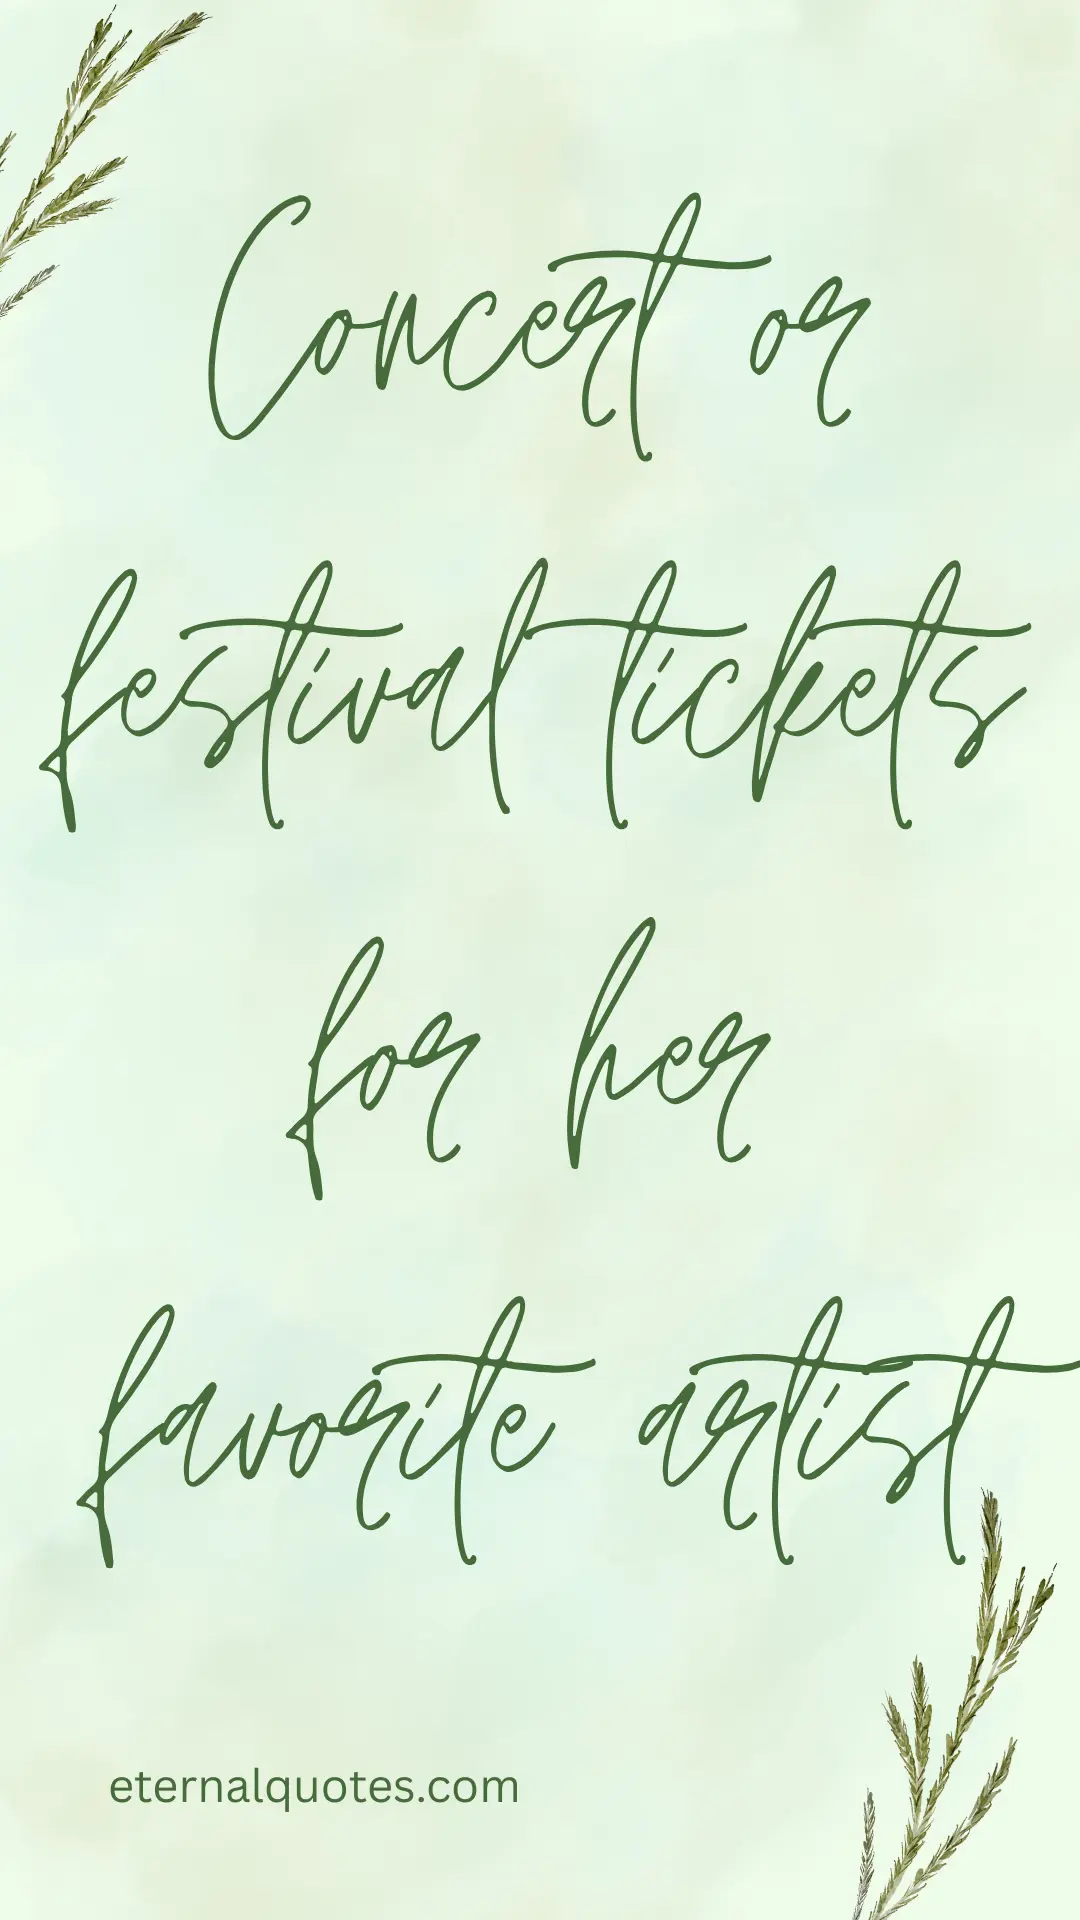 Concert or
festival tickets
for her
favorite artist
eternalquotes.com